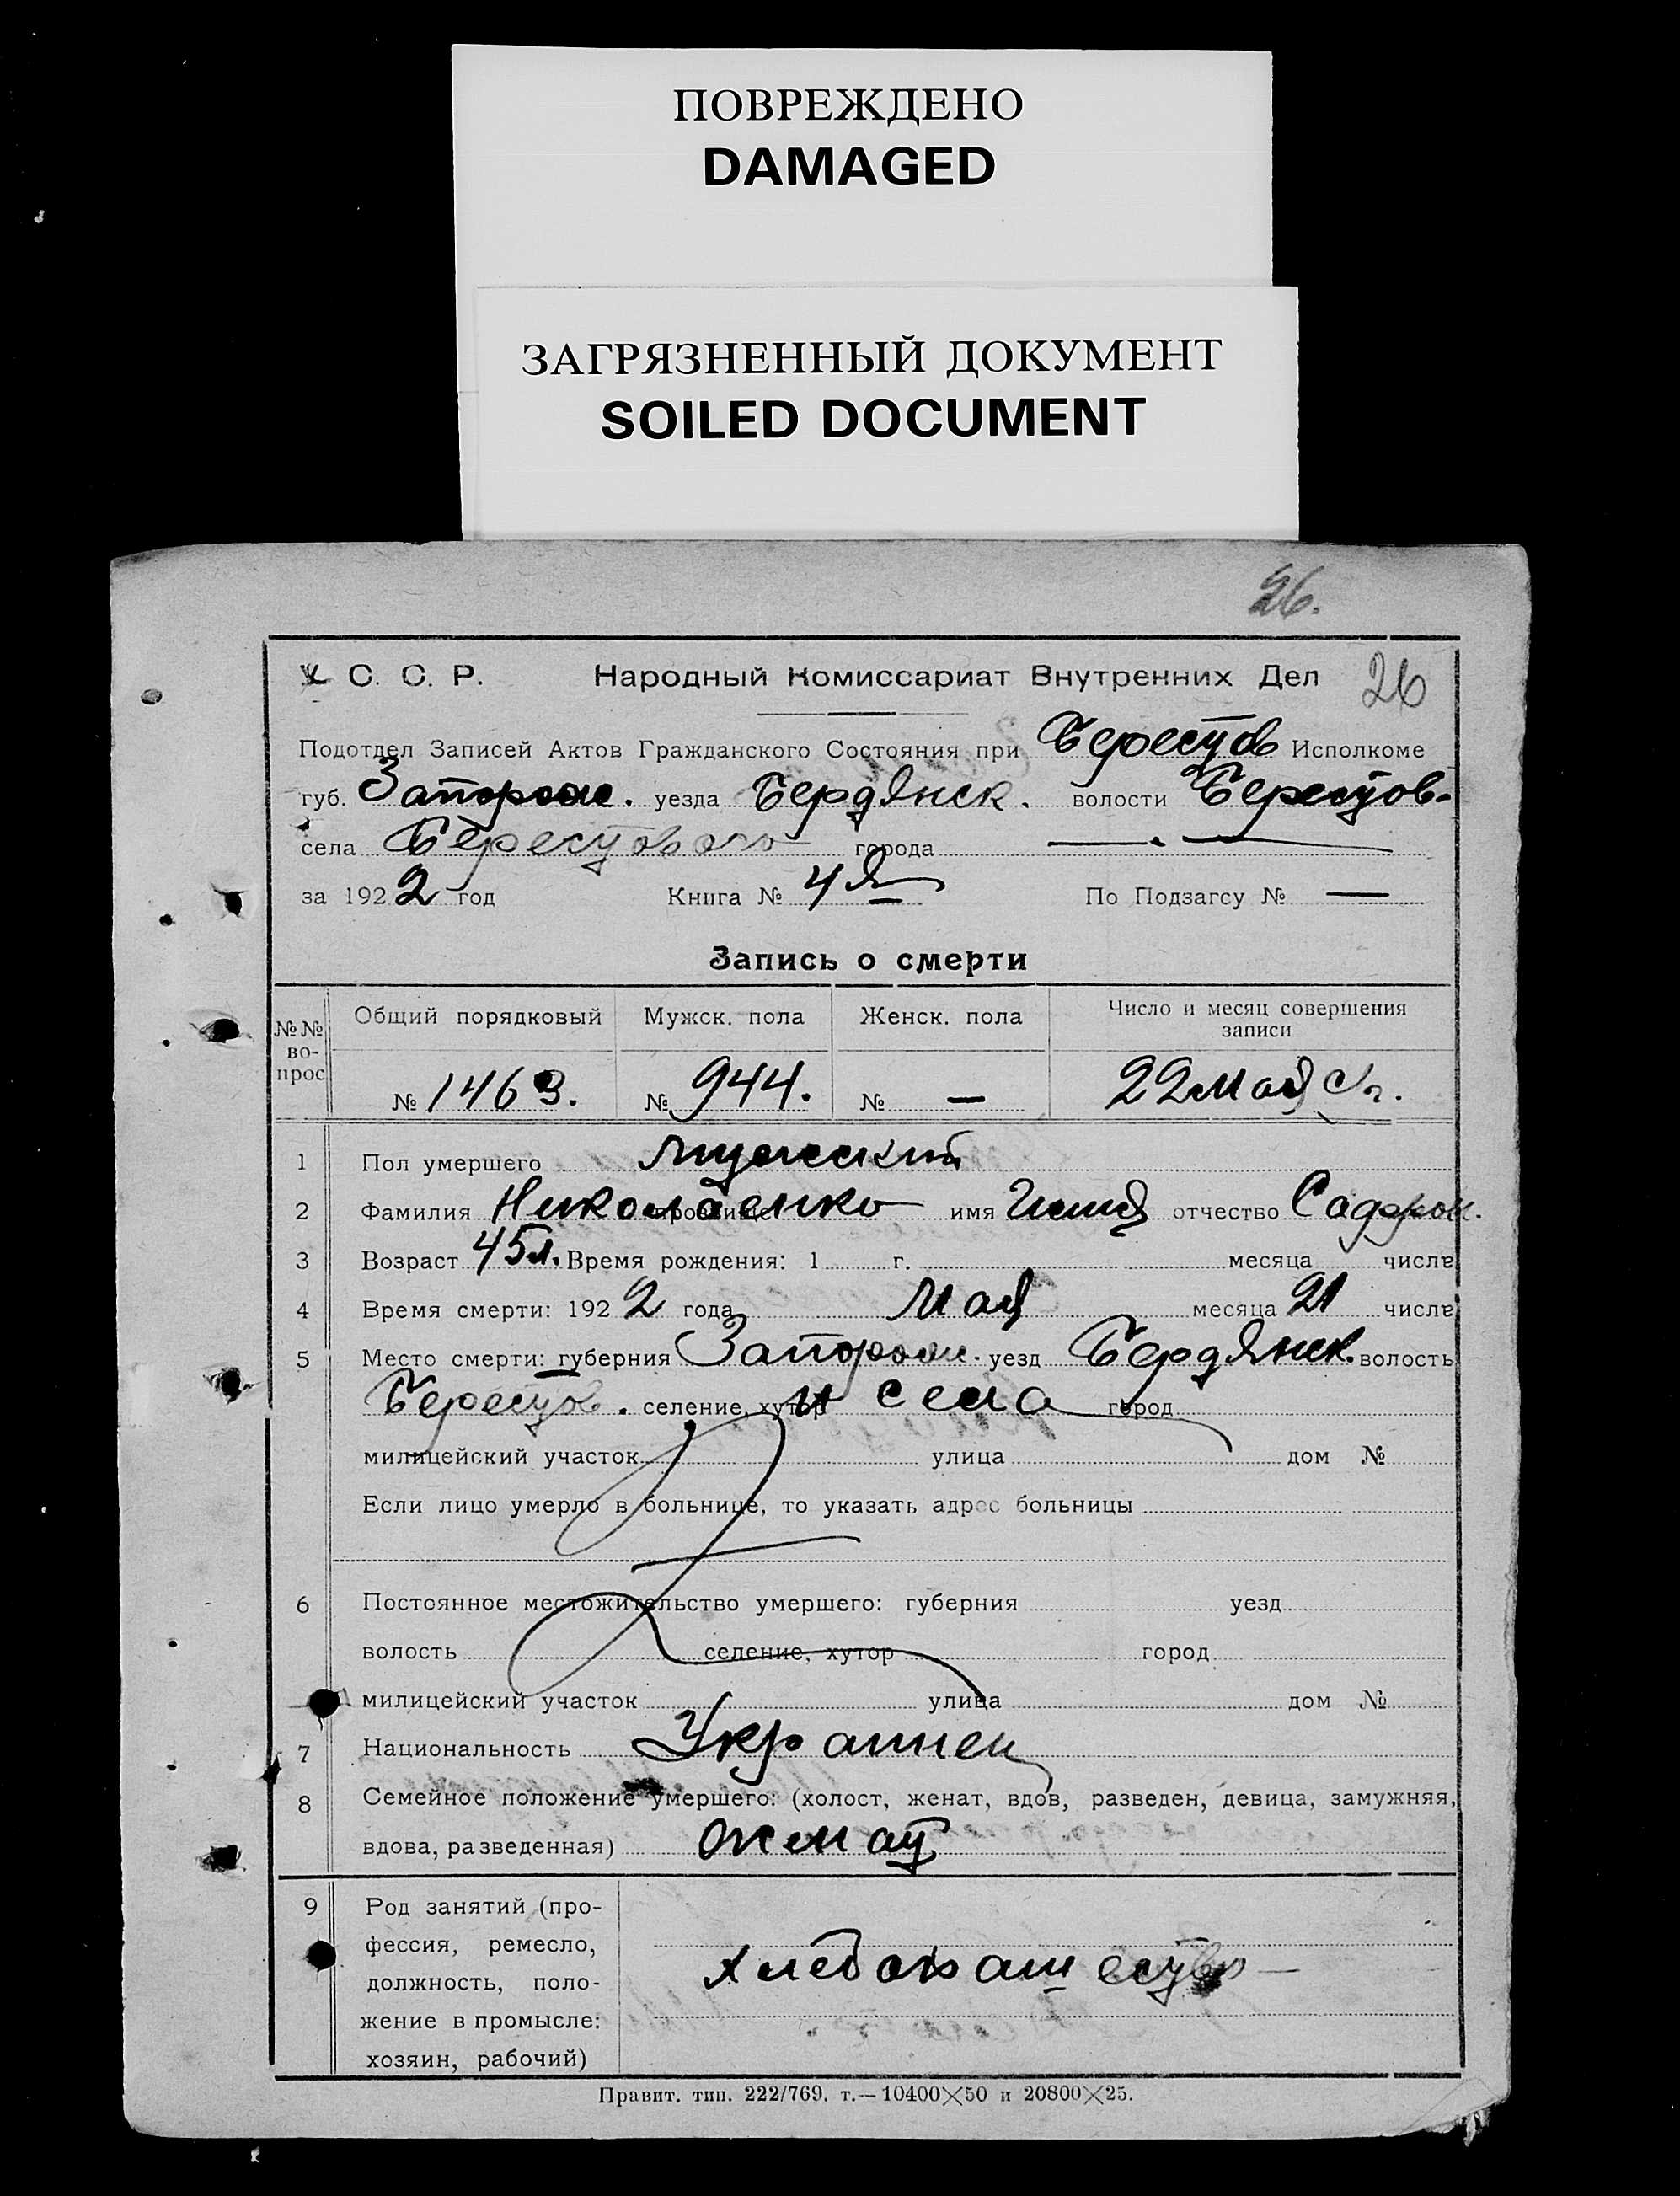 ПОВРЕЖДЕНО
DAMAGED
ЗАГРЯЗНЕННЫЙ ДОКУМЕНТ
SOILED DOCUMENT
26.
У С. С. Р. Народный Комиссариат Внутренних Дел 26
Подотдел Записей Актов Гражданского Состояния при Берестов Исполкоме
губ. Запорож. уезда Бердянск. волости Берестов.
села Берестового города —
за 1922 год Книга № 4я По Подзагсу № —
Запись о смерти
№№ вопрос Общий порядковый Мужск. пола Женск. пола Число и месяц совершения записи
№ 1463. № 944. № — 22 мая с/г.
1 Пол умершего мужский
2 Фамилия Николаенко прозвище имя Илия отчество
3 Возраст 45л. Время рождения: 1 г. месяца числа
4 Время смерти: 1922 года мая месяца 21 числа
5 Место смерти: губерния Запорож. уезд Бердянск. волость
Берестов. селение, хутор и села город
милицейский участок улица дом №
Если лицо умерло в больнице, то указать адрес больницы
6 Постоянное местожительство умершего: губерния уезд
волость селение, хутор город
милицейский участок улица дом №
7 Национальность Украинец
8 Семейное положение умершего: (холост, женат, вдов, разведен, девица, замужняя,
вдова, разведенная) Женат
9 Род занятий (про-
фессия, ремесло,
должность, поло- хлебопашество
жение в промысле:
хозяин, рабочий)
Правит. тип. 222/769. т.—10400×50 и 20800×25.